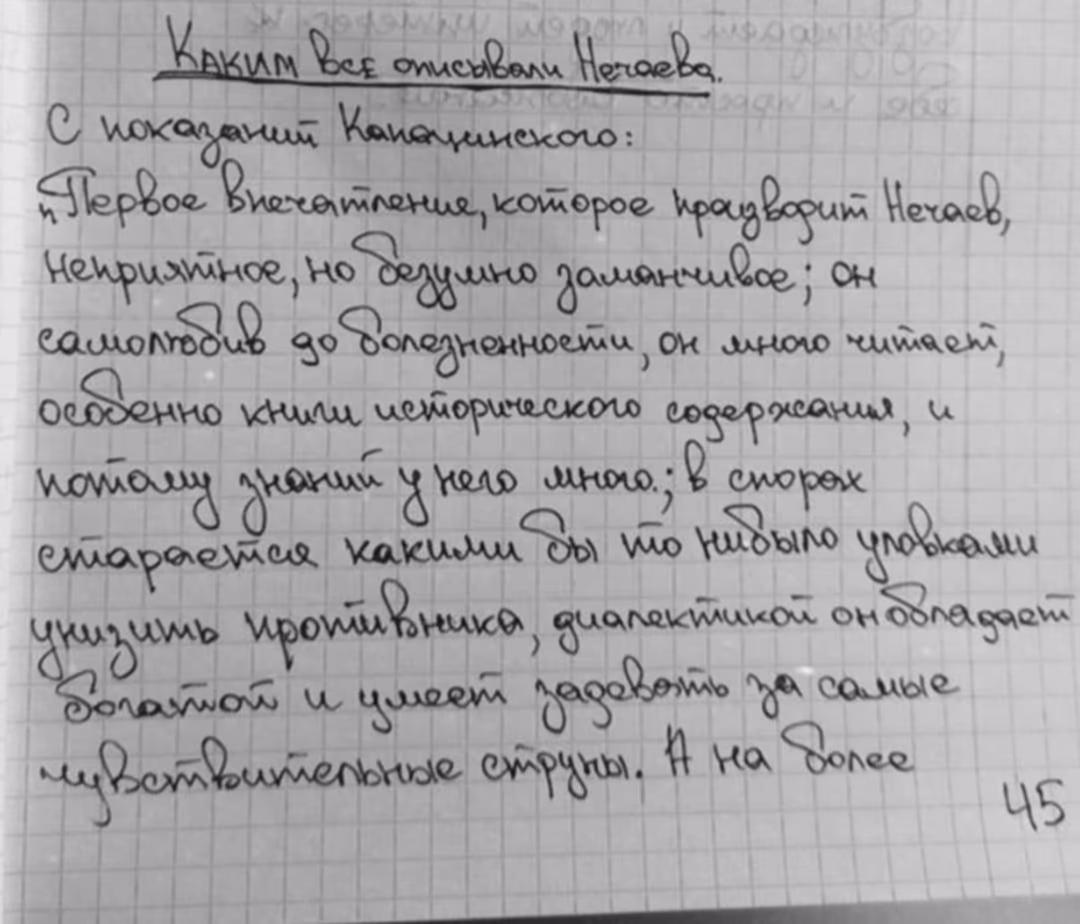 Каким все описывали Нечаева.
С показаний Капацинского:
"Первое впечатление, которое празводит Нечаев,
неприятное, но безумно заманчивое; он
самолюбив до болезненности, он много читает,
особенно книги исторического содержания, и
потому знаний у него много.; в спорах
старается какими бы то нибыло уловками
унизить противника, диалектикой он обладает
богатой и умеет задевать за самые
чувствительные струны. А на более
45